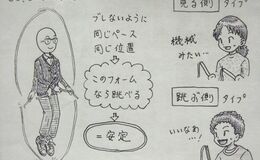 ブレないように
同じペース
同じ位置
このフォーム
なら跳べる
=安定
見る側タイプ
機械
みたい…
跳ぶ側タイプ
いいなぁ…!